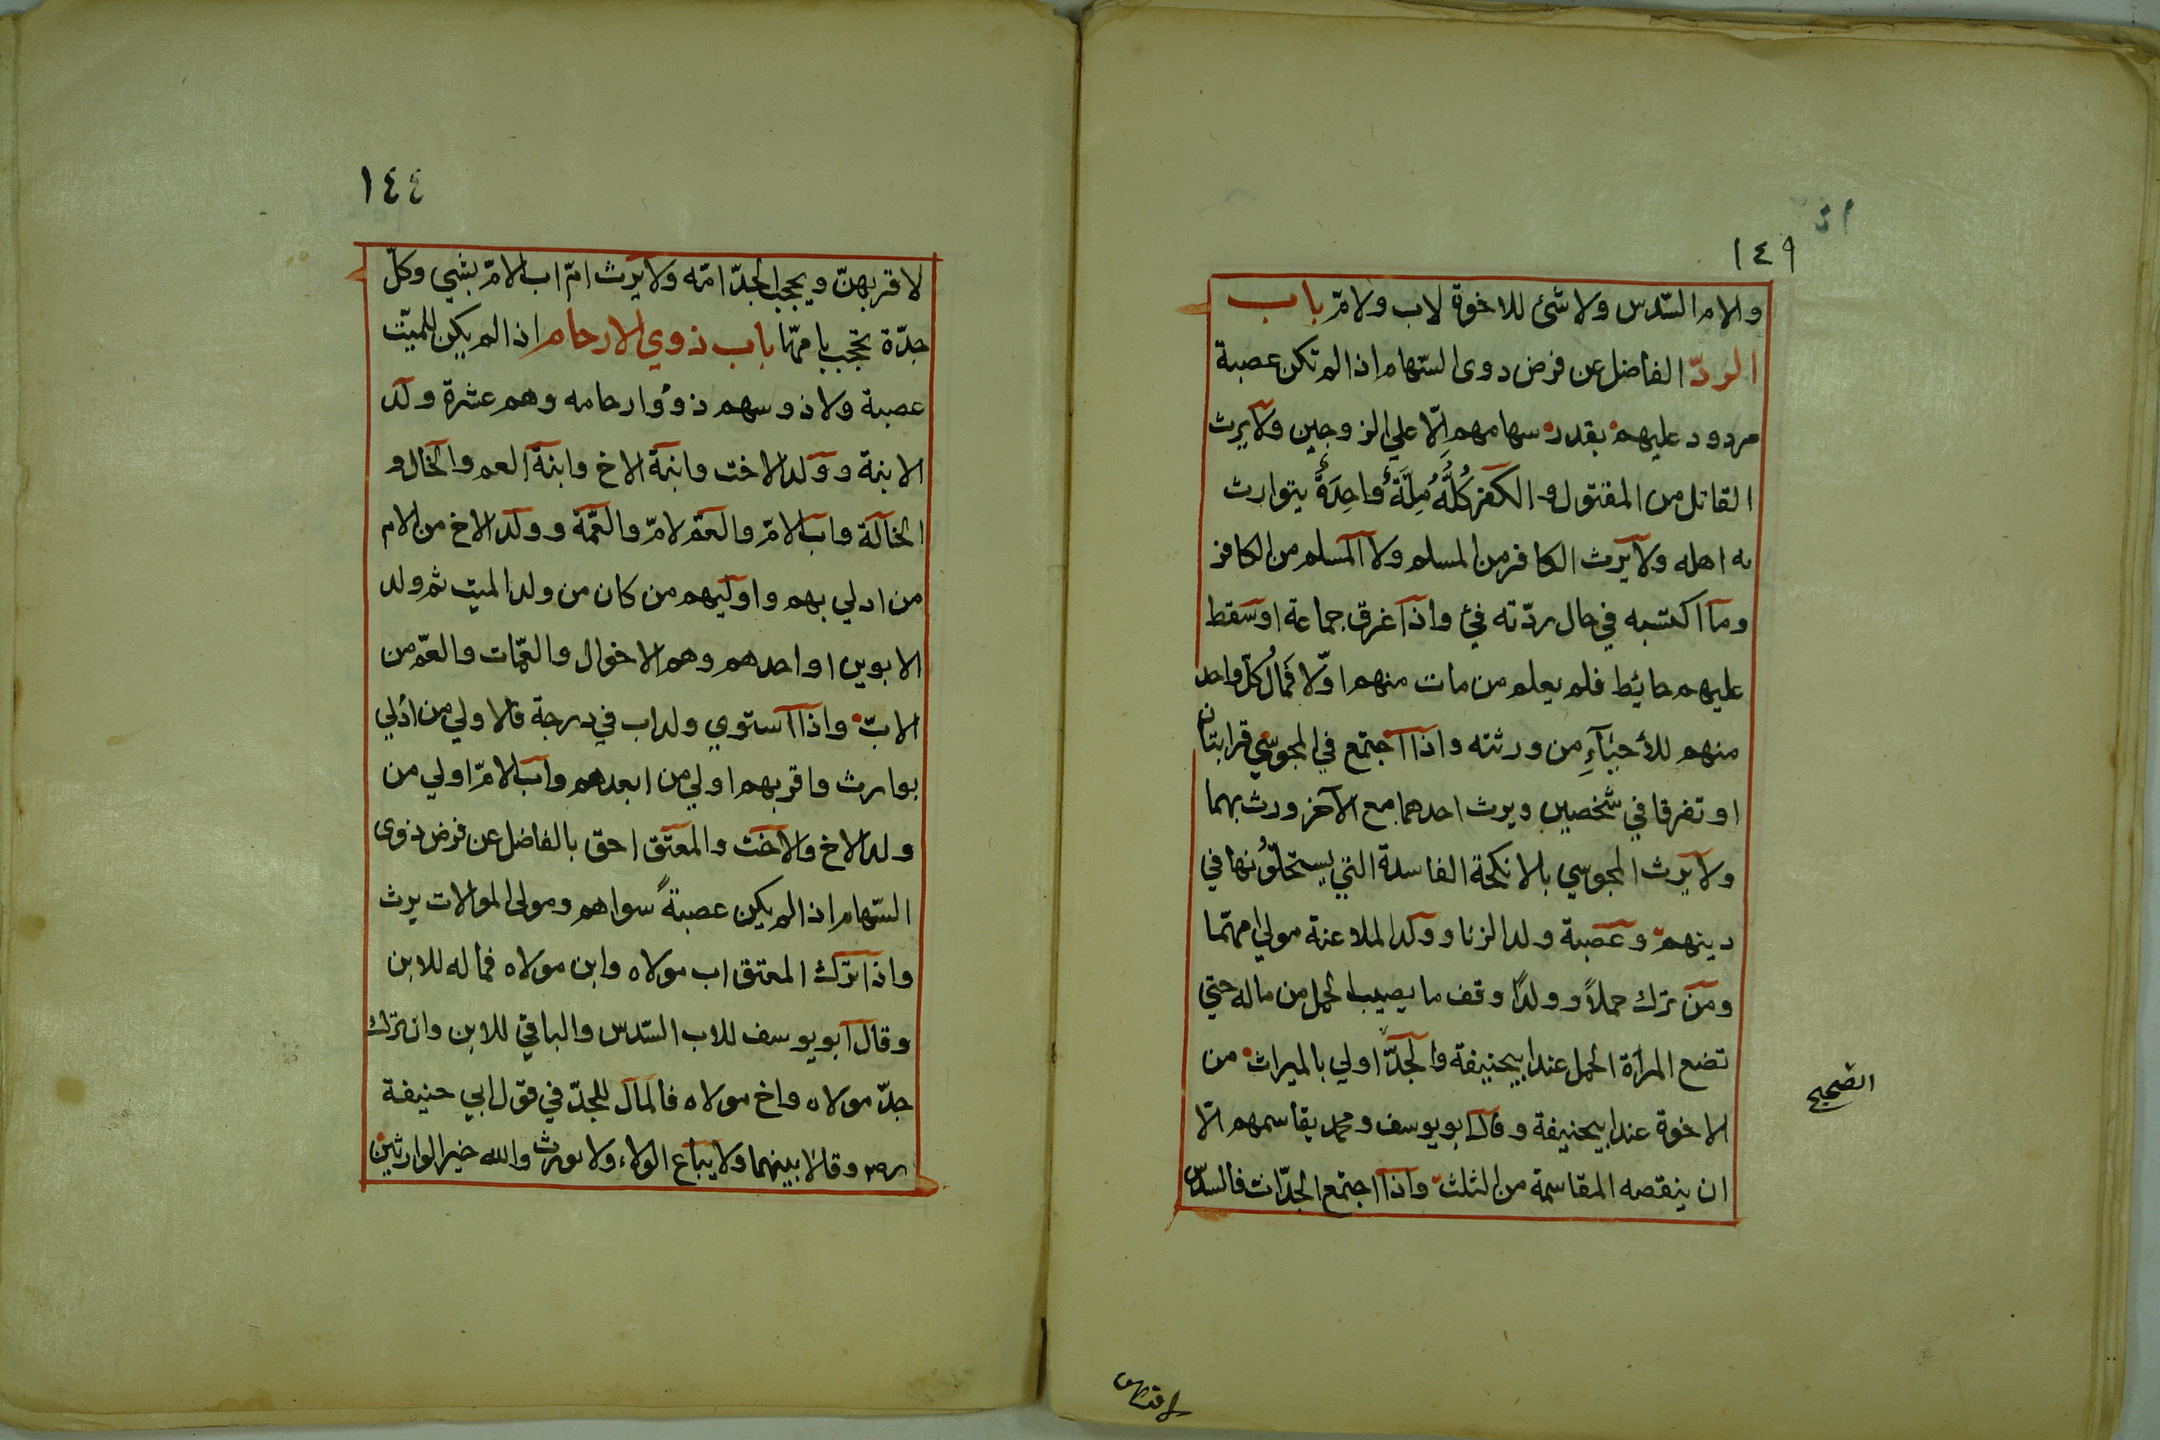 ١٤٩
والام السّدس ولا شئ للاخوة لاب ولامّ باب
الردّ الفاضل عن فرض دوى السّهام اذا لم تكن عصبة
مردود عليهم بقدر سهامهم اِلّا علي الزوجين ولا يرث
القاتل من المقتول والكفر كُلُّهُ مِلَّةٌ واحِدَةٌ يتوارث
به اهله ولا يرث الكافر من المسلم ولا المسلم من الكافر
وما اكتسبه في حال ردّته فئ واذا غرق جماعة او سقط
عليهم حائط فلم يعلم من مات منهم اوّلا فَمالُ كلّ واحد
منهم للأحيَآءِ من ورثته واذا اجتمع في المجوسي قرابتان
او تفرقا في شخصين ويرث احدهما مع الآخر ورث بهما
ولا يرث المجوسي بالانكحة الفاسدة التي يستحلّونها في
دينهم وعصبة ولد الزنا وولد الملاعنة مولي امهّما
ومن ترك حملاً وولدًا وقف ما يصيب الحمل من ماله حتي
تضع المرأة الحمل عند ابيحنيفة والجدّ اولي بالميراث من
الصحيح
الاخوة عند ابيحنيفة وقال ابو يوسف ومحمد يقاسمهم الّا
ان ينقصه المقاسمة من الثلث واذا اجتمع الجدّات فالسدس
لاقربهنّ
١٤٤
لاقربهنّ ويحجب الجدّ امّه ولا يرث امّ اب الامّ بشي وكلّ
جدّة تحجب بامهّا باب ذوي الارحام اذا لم يكن للميّت
عصبة ولا ذو سهم ذوؤا رحامه وهم عشرة ولد
الابنة وولد الاخت وابنة الاخ وابنة العم والخال و
الخالة واب الامّ والعم لامّ والعمّة وولد الاخ من الام
من ادلي بهم واوليهم من كان من ولد الميت ثم ولد
الابوين او احدهم وهم الاخوال والعمّات والعمّ من
الابّ واذا استوي ولد اب في درجة فالاولي من ادلي
بوارث واقربهم اولي من ابعدهم واب الامّ اولي من
ولد الاخ والاخت والمعتق احق بالفاضل عن فرض ذوى
السّهام اذا لم يكن عصبةً سواهم ومولى الموالات يرث
واذا ترك المعتق اب مولاه وابن مولاه فماله للابن
وقال ابو يوسف للاب السّدس والباقي للابن وان ترك
جدّ مولاه واخ مولاه فالمال للجدّ في قول ابي حنيفة
وقالا بينهما ولا يباع الولاء ولا يورث والله خير الوارثين